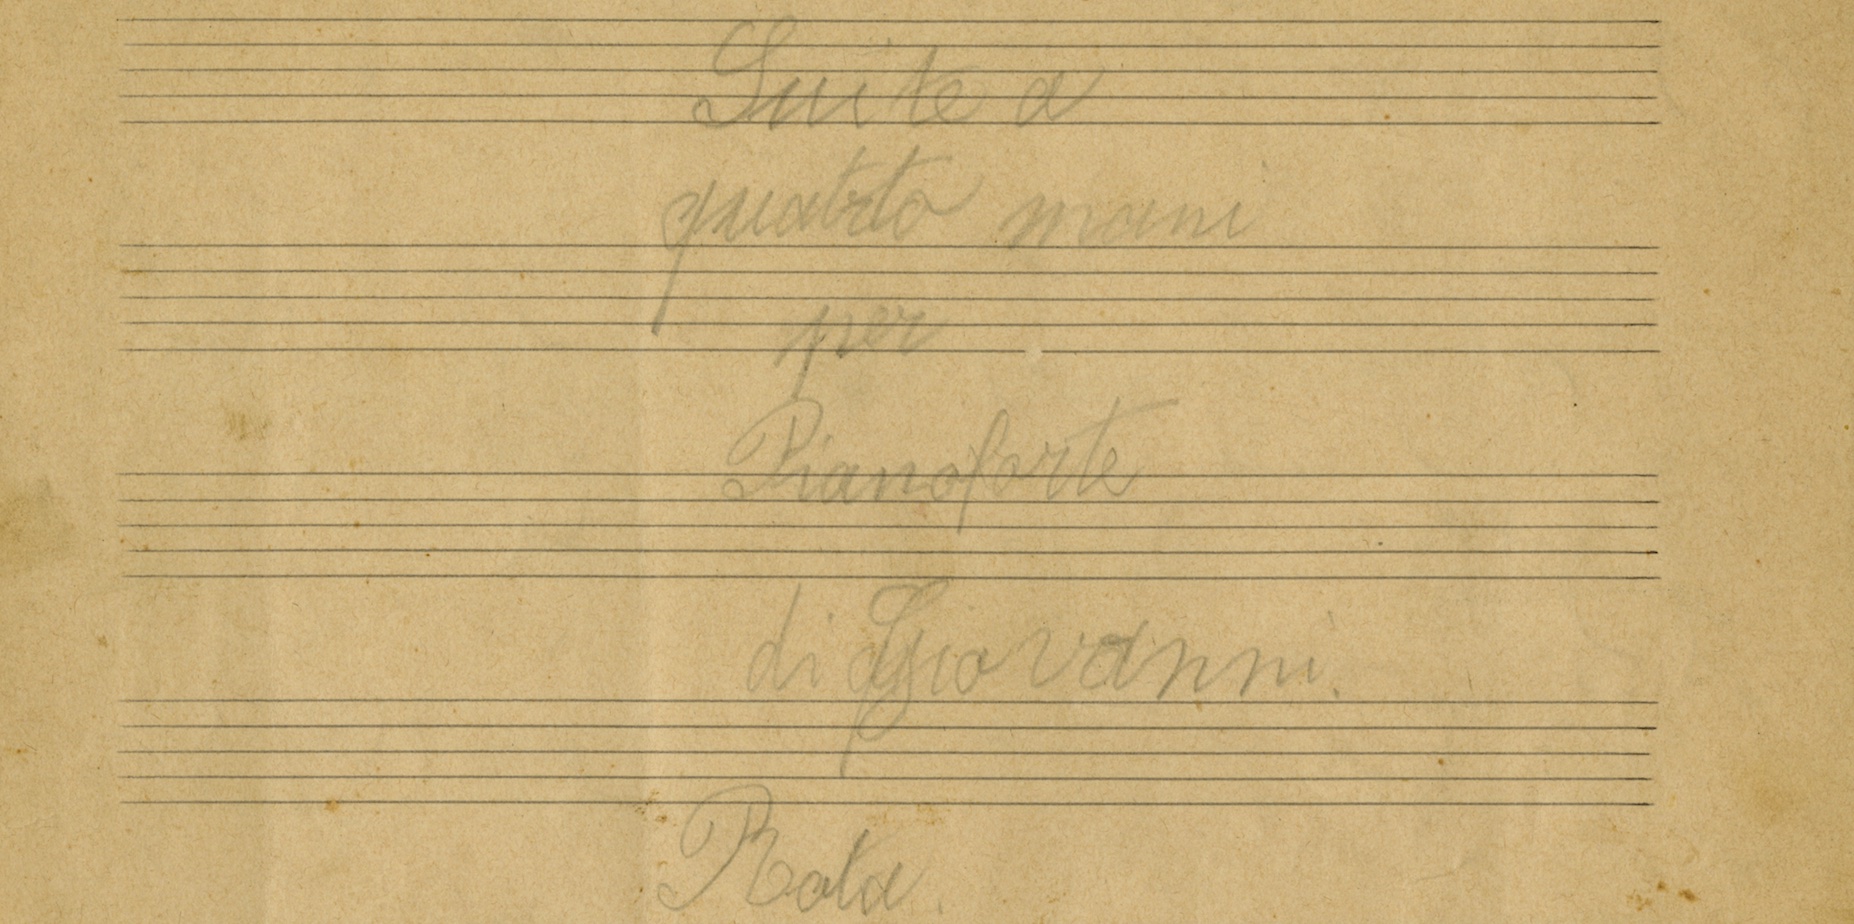 Suite a
quattro mani
per
Pianoforte
di Giovanni.
Rota.